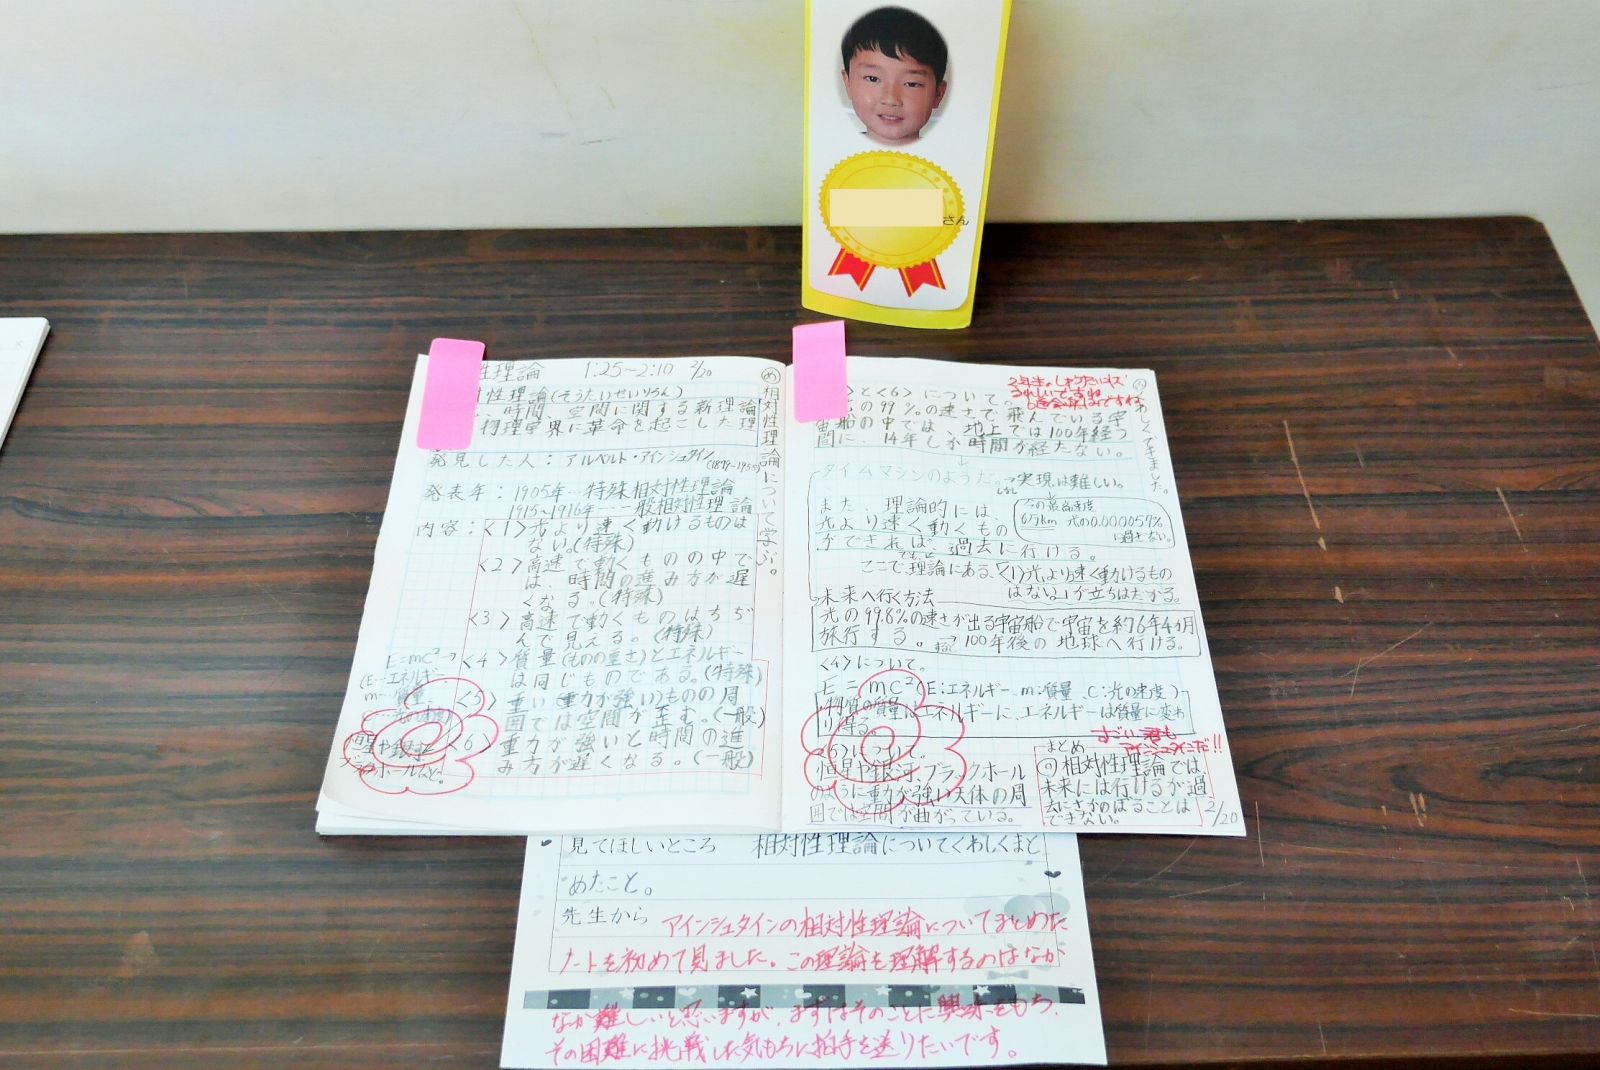 さん
性理論 1:25~2:10 2/20
め 相対性理論について学ぶ。
性理論(そうたいせいりろん)
、時間、空間に関する新理論
物理学界に革命を起こした理
発見した人:アルベルト・アインシュタイン
(1879-1955)
発表年:1905年…特殊相対性理論
1915~1916年…一般相対性理論
内容:<1>光より速く動けるものは
ない。(特殊)
<2>高速で動くものの中で
は、時間の進み方が遅
くなる。(特殊)
<3>高速で動くものはちぢ
んで見える。(特殊)
E=mc²→<4>質量(ものの重さ)とエネルギー
は同じものである。(特殊)
(E…エネルギー
m…質量
…光の速度)
<5>重い(重力が強い)ものの周
囲では空間が歪む。(一般)
恒星や銀河
ブラックホールなど。
<6>重力が強いと時間の進
み方が遅くなる。(一般)
>と<6>について。
光の99%の速さで飛んでいる宇
宙船の中では、地上では100年経つ
間に、14年しか時間が経たない。
↓
タイムマシンのようだ。→実現は難しい。
今の最高速度
6万km 光の0.000057%
に過ぎない。
また、理論的には
光より速く動くもの
ができれば、過去に行ける。
でも
ここで理論にある、「<1>光より速く動けるもの
はない」が立ちはだかる。
未来へ行く方法
光の99.8%の速さが出る宇宙船で宇宙を約6年4ヵ月
旅行する。 100年後の地球へ行ける。
<4>について。
E=mc²(E:エネルギー m:質量 C:光の速度)
物質の質量はエネルギーに、エネルギーは質量に変わ
り得る。
<5>について。
恒星や銀河、ブラックホール
のように重力が強い天体の周
囲では空間が曲がっている。
すごい 君も
アインシュタインだ!!
まとめ
相対性理論では、
未来には行けるが過
去にさかのぼることは
できない。
2/20
見てほしいところ 相対性理論についてくわしくまと
めたこと。
先生から アインシュタインの相対性理論についてまとめた
ノートを初めて見ました。この理論を理解するのはなか
なか難しいと思いますが、まずはそのことに興味をもち、
その困難に挑戦した気もちに拍手を送りたいです。